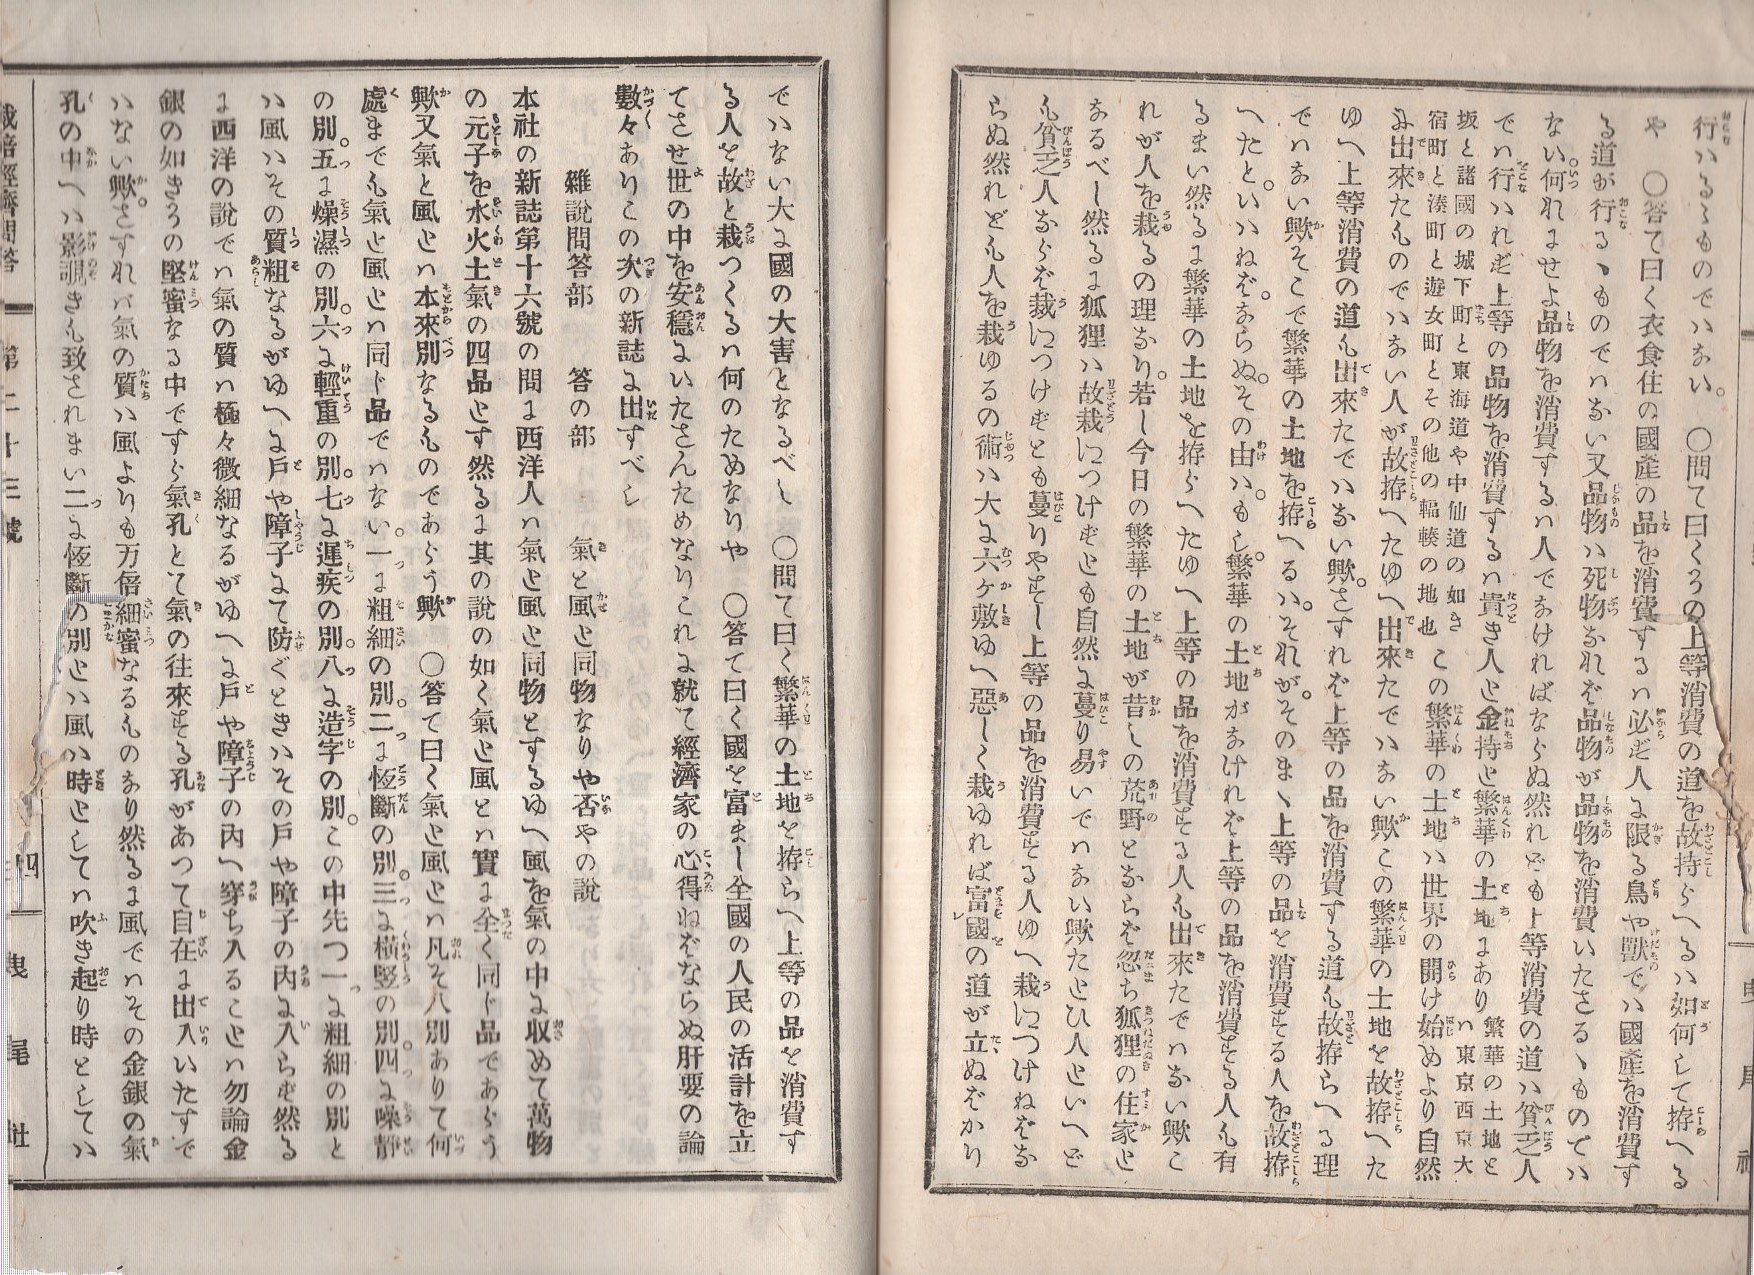 行ハるゝものでハない。〇問て曰くろの上等消費の道を故持らへるハ如何して拵へる
や　〇答て曰く衣食住の國產の品を消費するハ必ず人に限る鳥や獸でハ國產を消費す
る道が行るゝものでハない又品物ハ死物なれバ品物が品物を消費いたさるゝものでハ
ない何れにせよ品物を消費するハ人でなければならぬ然れども上等消費の道ハ貧乏人
でハ行ハれず上等の品物を消費するハ貴き人と金持と繁華の土地にあり繁華の土地とハ東京西京大
坂と諸國の城下町と東海道や中仙道の如き宿町と湊町と遊女町とその他の輻輳の地也この繁華の土地ハ世界の開け始めより自然
に出來たものでハない人が故拵へたゆへ出來たでハない歟この繁華の土地を故拵へた
ゆへ上等消費の道も出來たでハない歟。さすれバ上等の品を消費する道も故拵らへる理
でハない歟そこで繁華の土地を拵へるハ。それが。そのまゝ上等の品を消費する人を故拵
へたといハねバ。ならぬ。その由ハ。もし。繁華の土地がなけれバ上等の品を消費する人も有
るまい然るに繁華の土地を拵らへたゆへ上等の品を消費する人も出來たでハない歟こ
れが人を栽るの理なり。若し今日の繁華の土地が昔しの荒野とならバ忽ち狐狸の住家と
なるべし然るに狐狸ハ故栽につけずとも自然に蔓り易いでハない歟たとひ人といへど
も貧乏人ならバ裁につけずとも蔓りやすし上等の品を消費する人ゆへ栽につけねバな
らぬ然れども人を栽ゆるの術ハ大に六ケ敷ゆへ惡しく栽ゆれば富國の道が立ぬバかり
でハない大に國の大害となるべし　〇問て曰く繁華の土地を拵らへ上等の品を消費す
る人を故と栽つくるハ何のためなりや　〇答て曰く國を富まし全國の人民の活計を立
てさせ世の中を安穩にいたさんためなりこれに就て經濟家の心得ねバならぬ肝要の論
數々ありこの次の新誌に出すべし
雜說問答部　答の部　氣と風と同物なりや否やの說
本社の新誌第十六號の問に西洋人ハ氣と風と同物とするゆへ風を氣の中に収めて萬物
の元子を水火土氣の四品とす然るに其の說の如く氣と風とハ實に全く同じ品であらう
歟又氣と風とハ本來別なるものであらう歟　〇答て曰く氣と風とハ凡そ八別ありて何
處までも氣と風とハ同じ品でハない。一に粗細の別。二に恆斷の別。三に橫竪の別四に噪靜
の別。五に燥濕の別。六に輕重の別。七に遲疾の別。八に造字の別。この中先つ一に粗細の別と
ハ風ハその質粗なるがゆへに戶や障子にて防ぐときハその戶や障子の內に入らず然る
に西洋の說でハ氣の質ハ極々微細なるがゆへに戶や障子の內へ穿ち入ることハ勿論金
銀の如きろの堅蜜なる中ですら氣孔とて氣の往來する孔があつて自在に出入いたすで
ハない歟。さすれバ氣の質ハ風よりも万倍細蜜なるものなり然るに風でハその金銀の氣
孔の中へハ影覗きも致されまい二に恆斷の別とハ風ハ時としてハ吹き起り時としてハ
栽培經濟問答　第二十三號　四　曳尾社